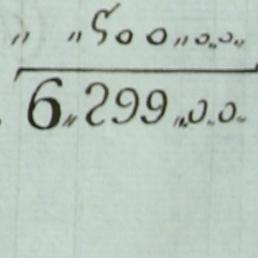 „ „500„0„0„
6„299„0„0„